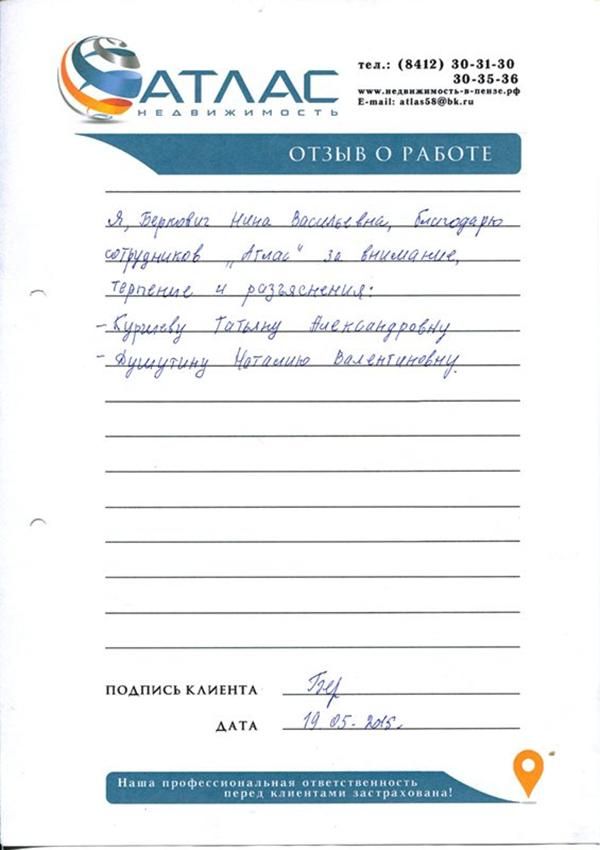 АТЛАС
НЕДВИЖИМОСТЬ
тел.: (8412) 30-31-30
30-35-36
www.недвижимость-в-пензе.рф
E-mail: atlas58@bk.ru
ОТЗЫВ О РАБОТЕ
Я, Беркович Нина Васильевна, благодарю
сотрудников „Атлас“ за внимание,
терпение и разъяснения:
- Татьяну Александровну
- Душутину Наталию Валентиновну.
ПОДПИСЬ КЛИЕНТА Бер
ДАТА 19.05-2015г.
Наша профессиональная ответственность
перед клиентами застрахована!